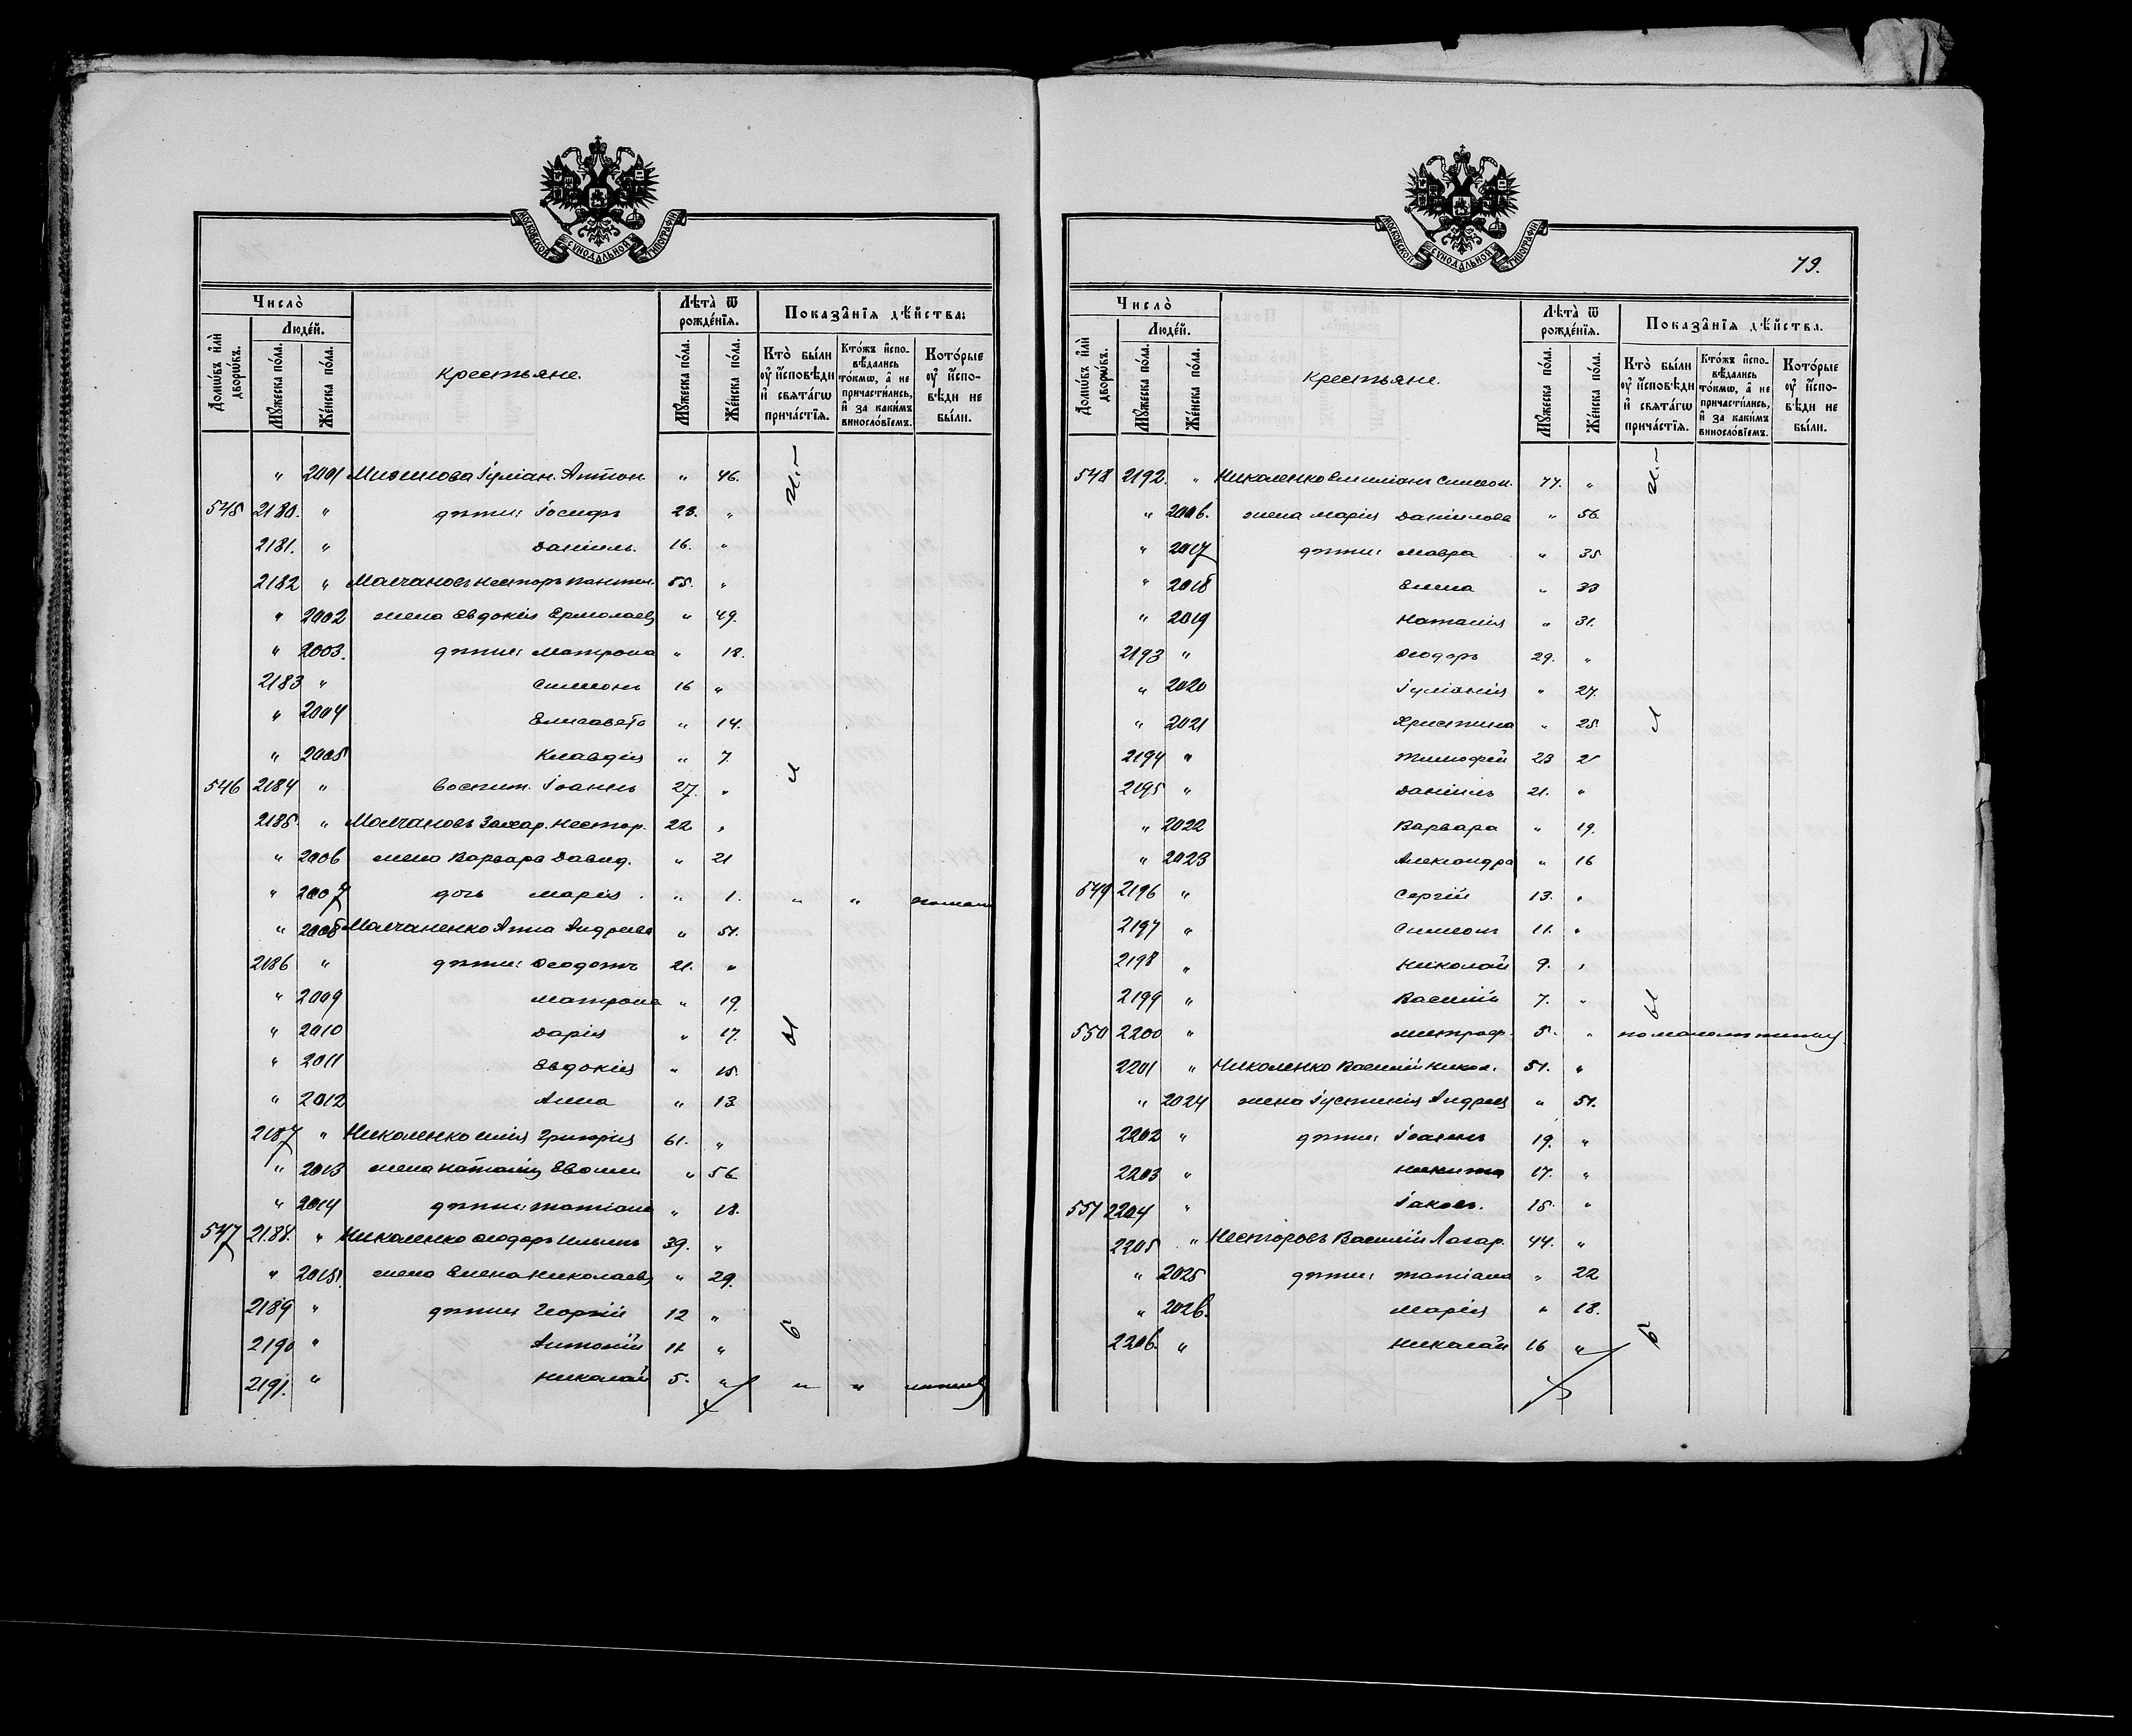 МОСКОВСКОЙ СУНОДАЛЬНОЙ ТИПОГРАФІИ
Число̀
Домѡ́въ и҆лѝ дворѡ́въ.
Люде́й.
Мꙋ́жеска по́ла.
Же́нска по́ла.
Крестьяне.
Лѣта̀ ѿ рожде́нїѧ.
Мꙋ́жеска по́ла.
Же́нска по́ла.
Показа̂нїѧ дѣ́йства:
Кто̀ бы́ли ᲂу҆ и҆́сповѣди и҆ свѧта́гѡ прича́стїѧ.
Кто́жъ и҆спо-вѣ́дались то́кмѡ, а҆ не причасти́лись, и҆ за каки́мъ виносло́вїемъ.
Кото́рые ᲂу҆ и҆́спо-вѣди не бы́ли.
" 2001 Іуліан. Антон. " 46.
545 2180. " дѣти: Іосифъ 23. "
2181. " Даніилъ. 16. "
2182 " Малчановъ Несторъ 55. "
" 2002 жена Евдокія Ермолаев " 49.
" 2003. дѣти: Матрона " 18.
2183 " Симеонъ 16 "
" 2004 Елисавета " 14.
" 2005 Клавдія " 7.
546 2184 " воспит. Іоаннъ 27. "
2185. " Малчановъ Захар. Нестор. 22 "
" 2006 жена Варвара Давид. " 21
" 2007 дочь Марія " 1. " "
" 2008 Малчаненко Анна Андреева " 51.
2186 " дѣти: Ѳеодотъ 21. "
" 2009 Матрона " 19.
" 2010 Дарія " 17.
" 2011 Евдокія " 15.
" 2012 Анна " 13
2187 " Николенко Илія Григорія 61. "
" 2013 жена Наталія " 56
" 2014 дѣти: Татіана " 18.
547 2188. " Николенко Ѳеодоръ Ильинъ 39. "
" 2015. жена Елена Николаев " 29.
2189 " дѣти Георгій 12 "
2190 " Антоній 11 "
2191. " Николай 5. " " "
МОСКОВСКОЙ СУНОДАЛЬНОЙ ТИПОГРАФІИ
79.
Число̀
Домѡ́въ и҆лѝ дворѡ́въ.
Люде́й.
Мꙋ́жеска по́ла.
Же́нска по́ла.
Крестьяне.
Лѣта̀ ѿ рожде́нїѧ.
Мꙋ́жеска по́ла.
Же́нска по́ла.
Показа̂нїѧ дѣ́йства.
Кто̀ бы́ли ᲂу҆ и҆́сповѣди и҆ свѧта́гѡ прича́стїѧ.
Кто́жъ и҆спо-вѣ́дались то́кмѡ, а҆ не причасти́лись, и҆ за каки́мъ виносло́вїемъ.
Кото́рые ᲂу҆ и҆́спо-вѣди не бы́ли.
548 2192. " Николенко Емиліанъ Симеон. 77. "
" 2016. жена Марія Даніилова " 56.
" 2017 дѣти: Мавра " 35
" 2018 Елена " 33
" 2019 Наталія " 31.
2193 " Ѳеодоръ 29. "
" 2020 Іуліанія " 27.
" 2021 Христина " 25.
2194 " Тимофей 23 "
2195 " Даніилъ 21. "
" 2022 Варвара " 19.
" 2023 Александра " 16
549 2196 " Сергій 13. "
2197 " Симеонъ 11. "
2198 " Николай 9. "
2199 " Василій 7. "
550 2200 " Митроф. 5. " по малолѣтству
2201 " Николенко Василій Никол. 51. "
" 2024 жена Іустинія Андреев " 51.
2202 " дѣти: Іоаннъ 19. "
2203 " Никита 17. "
551 2204 " Іаковъ. 15. "
2205 " Несторовъ Василій Лазар. 44. "
" 2025 дѣти: Татіана " 22
" 2026. Марія " 18.
2206. " Николай 16 "